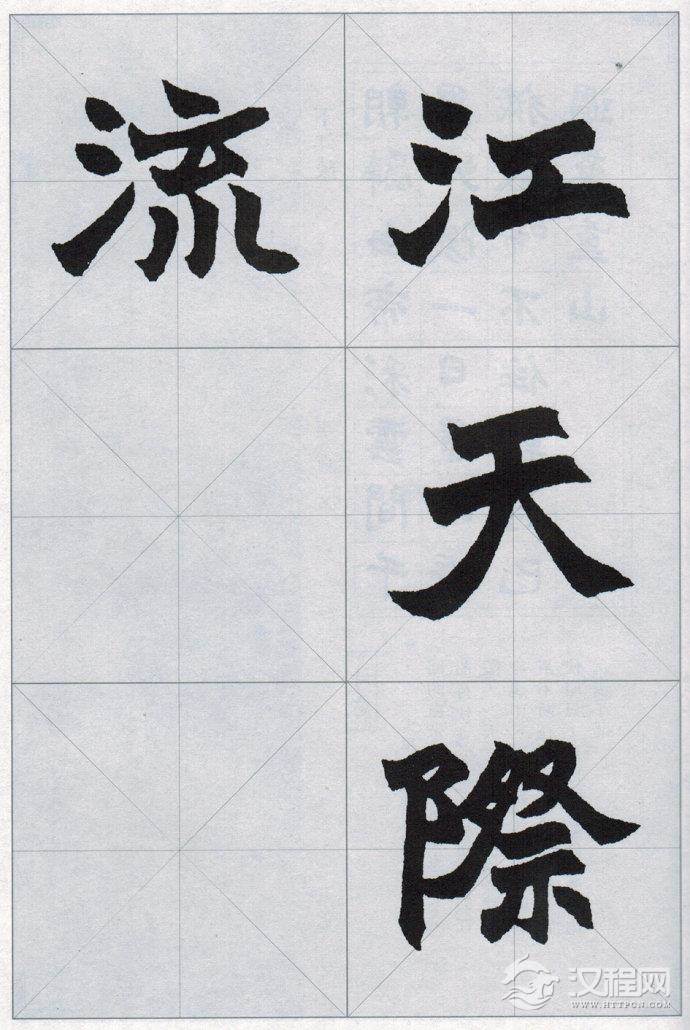 江天際
流
汉程网
WWW.HTTPCN.COM